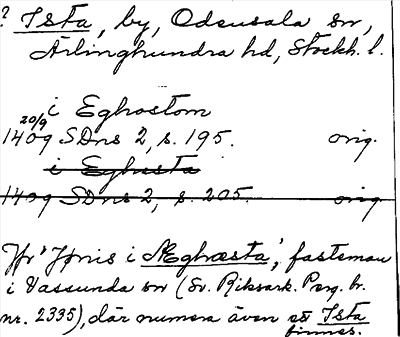 ? Ista, by, Odensala sn,
Ärlinghundra hd, Stockh. l.
i Eghostom
20/9
1409 SDns 2, s. 195. orig.
i Eghsta
1409 SDns 2, s. 205. orig
Jfr 'Jönis i Æghæsta', fasteman
i Vassunda sn (Sv. Riksark. Perg. br.
nr. 2335), där numera även ett Ista
finnes.